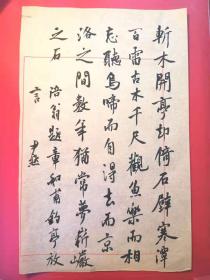 斩木开亭却倚石壁寒潭
百雷古木千尺觀魚樂而相
忘聽鳥啼而自得去而京
洛之間數年猶常夢斩巌
之石 涪翁題章和甫釣亭放
言 尹默